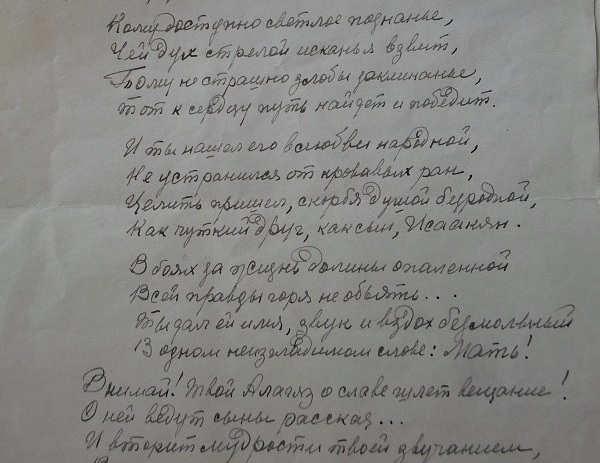 Кому доступно светлое познанье,
Чей дух стрелой исканья взвит,
Тому не страшно злобы заклинанье,
Тот к сердцу путь найдет и победит.
И ты нашел его в любви народной,
Не устранился от кровавых ран,
Целить пришел, скорбя душой безродной,
Как чуткий друг, как сын, Исаакян.
В боях за жизнь долины опаленной
Всей правды горя не объять...
Ты дал ей имя, звук и вздох безмолвный
В одном неизгладимом слове: Мать!
Внимай! Твой Алагяз о славе шлет вещание!
О ней ведут сыны рассказ...
И вторит мудрости твоей звучанием,